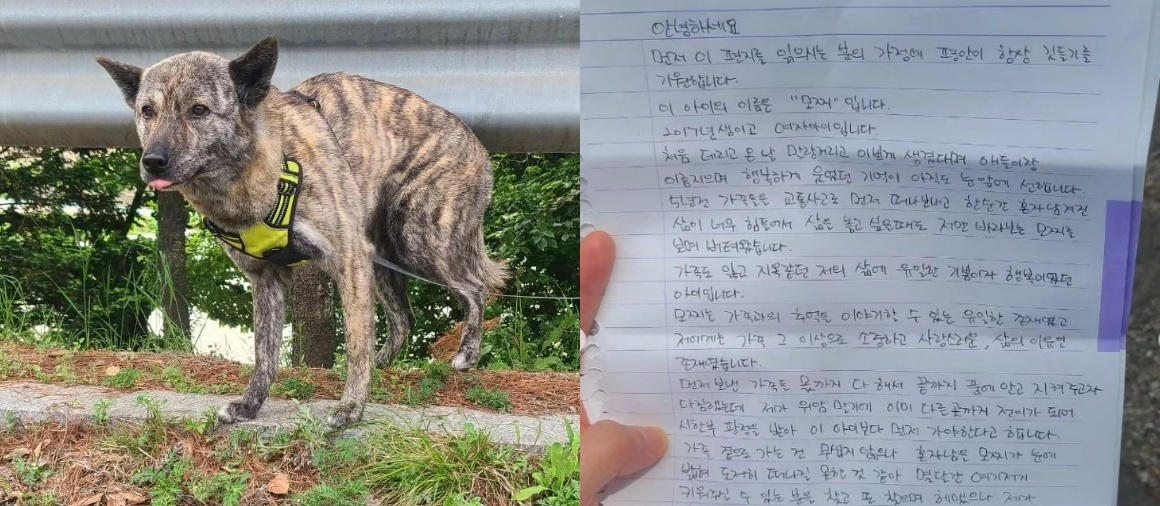 안녕하세요
먼저 이 편지를 읽으시는 분의 가정에 평안이 항상 깃들기를
기원합니다.
이 아이의 이름은 "모찌"입니다.
2017년생이고 여자아이입니다.
처음 데리고 온 날 말랑거리고 이쁘게 생겼다며 애들이랑
이름지으며 행복하게 웃었던 기억이 아직도 눈앞에 선합니다.
5년전 가족들을 교통사고로 먼저 떠나보내고 한순간 혼자 남겨진
삶이 너무 힘들어서 삶을 놓고 싶을때도 저만 바라보는 모찌를
보며 버텨왔습니다.
가족도 잃고 지옥같던 저의 삶에 유일한 기쁨이자 행복이였던
아이입니다.
모찌는 가족과의 추억들 이야기할 수 있는 유일한 존재였고
저에게는 가족 그 이상으로 소중하고 사랑스러운, 삶의 이유인
존재였습니다.
먼저보낸 가족들 몫까지 다 해서 끝까지 품에 안고 지켜주고자
다짐했는데 제가 위암 말기에 이미 다른곳까지 전이가 되어
시한부 판정을 받아 이 아이보다 먼저 가야한다고 합니다.
가족 곁으로 가는 건 무섭지 않으나 혼자남을 모찌가 눈에
밟혀 도저히 떠나질 못할 것 같아 몇달간 여기저기
키워주실 수 있는 분을 찾고 또 찾으며 헤맸으나 제가